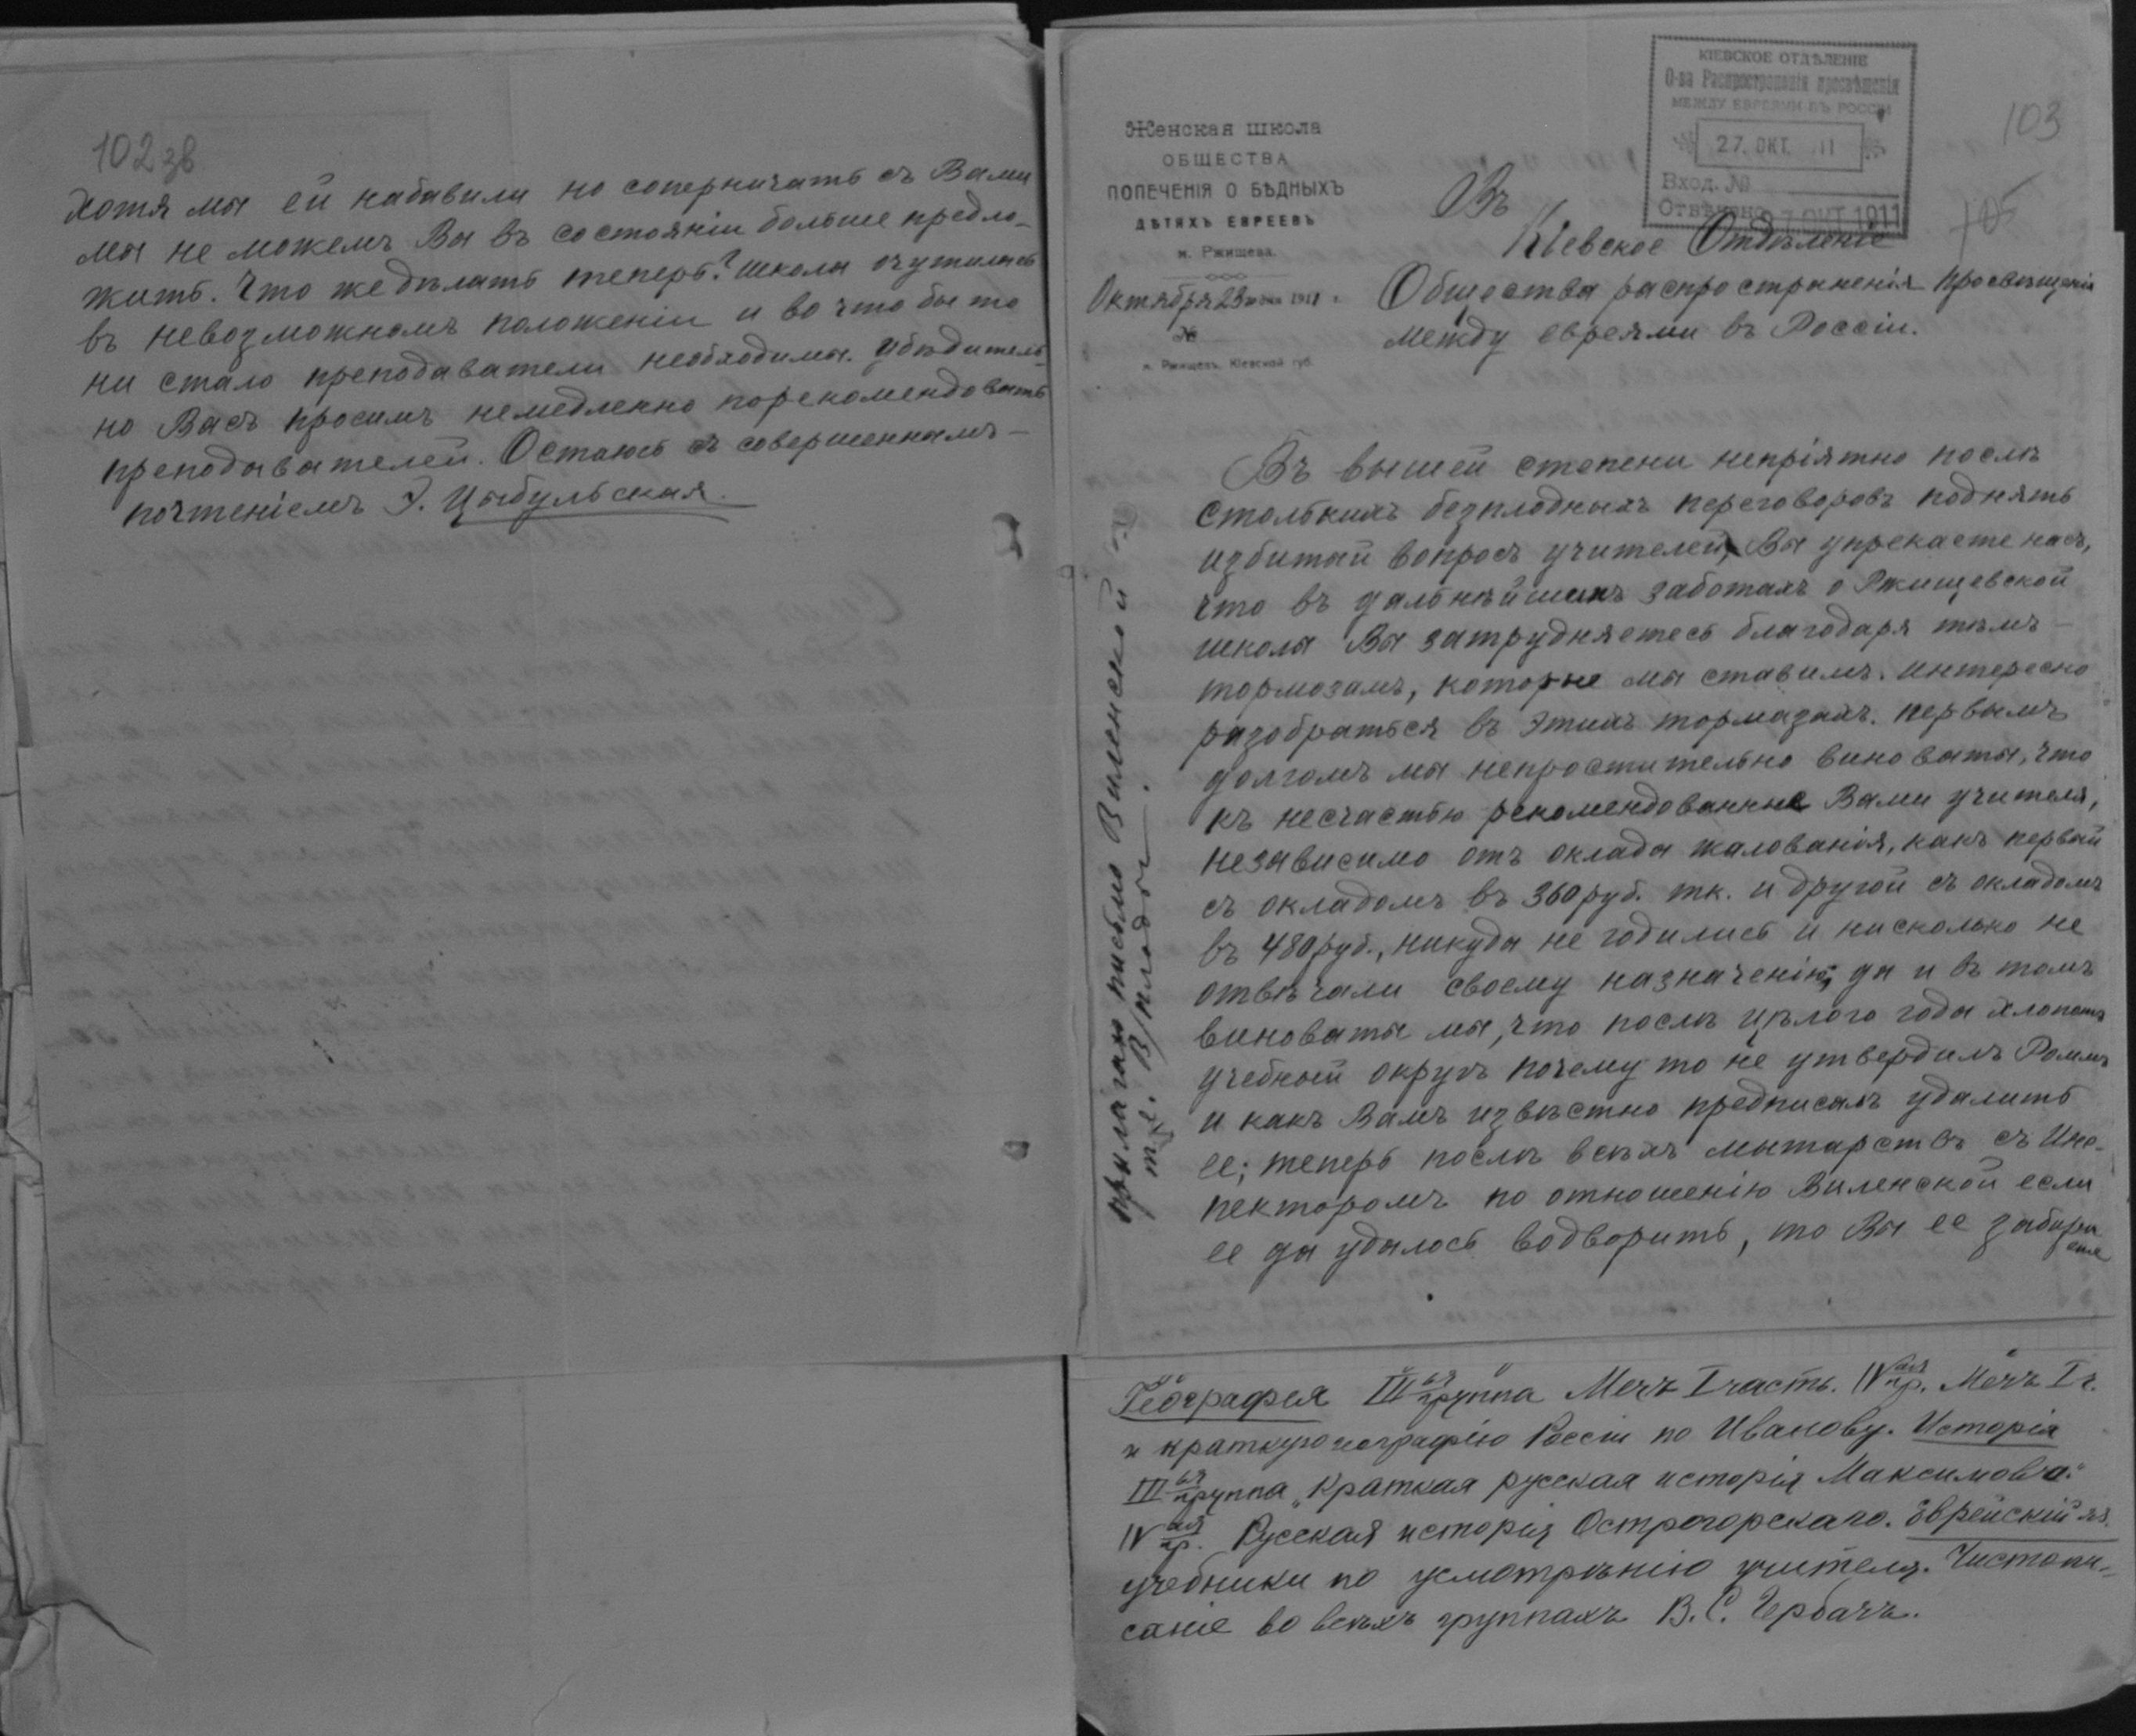 102 зв
Хотя мы ей набавили но соперничать съ Вами
мы не можемъ Вы въ состояніи больше предло-
жить. Что же дѣлать теперь? школа очутилась
въ невозможномъ положеніи и во что бы то
ни стало преподаватели необходимы. Убѣдитель-
но Васъ просимъ немедленно порекомендовать
преподавателей. Остаюсь съ совершеннымъ-
почтеніемъ Э. Цыбульская.
103
105
КІЕВСКОЕ ОТДѢЛЕНІЕ
О-ва Распространенія просвѣщенія
МЕЖДУ ЕВРЕЯМИ ВЪ РОССІИ
27. ОКТ. 11
Вход. №
Отвѣчено 27 ОКТ. 1911
Женская школа
ОБЩЕСТВА
ПОПЕЧЕНІЯ О БѢДНЫХЪ
ДѢТЯХЪ ЕВРЕЕВЪ
м. Ржищева.
Октября 23 дня 1911 г.
№
м. Ржищевъ, Кіевской губ.
Въ
Кіевское Отдѣленіе
Общества распространенія просвѣщенія
между евреями въ Россіи.
Въ вышей степени непріятно послѣ
столькихъ безплодныхъ переговоровъ поднять
избитый вопросъ учителей, Вы упрекаете насъ,
что въ дальнѣйшихъ заботахъ о Ржищевской
школы Вы затрудняетесь благодаря тѣмъ-
тормозамъ, которые мы ставимъ. Интересно
разобраться въ этихъ тормазахъ. Первымъ
долгомъ мы непростительно виноваты, что
къ несчастью рекомендованные Вами учителя,
независимо отъ оклада жалованія, какъ первый
съ окладомъ въ 360 руб. тк. и другой съ окладомъ
въ 480 руб., никуда не годились и нисколько не
отвѣчали своему назначенію, да и въ томъ
виноваты мы, что послѣ цѣлого года хлопотъ
учебный округъ почему то не утвердилъ Роммъ
и какъ Вамъ извѣстно предписалъ удалить
ее; теперь послѣ всѣхъ мытарствъ съ Инс-
пекторомъ по отношенію Виленской если
ее да удалось водворить, то Вы ее забира
ете
прилагаю письмо Виленской
География III ья группа Мечъ I часть. IV ая гр. Мечъ I ч.
и краткую географію Россіи по Иванову. Исторія
III ья группа „Краткая русская исторія Максимова."
IV ая гр. Русская исторія Острогорскаго. Еврейскій яз.
учебники по усмотрѣнію учителя. Чистопи-
саніе во всѣхъ группахъ В. С. Гербачъ.